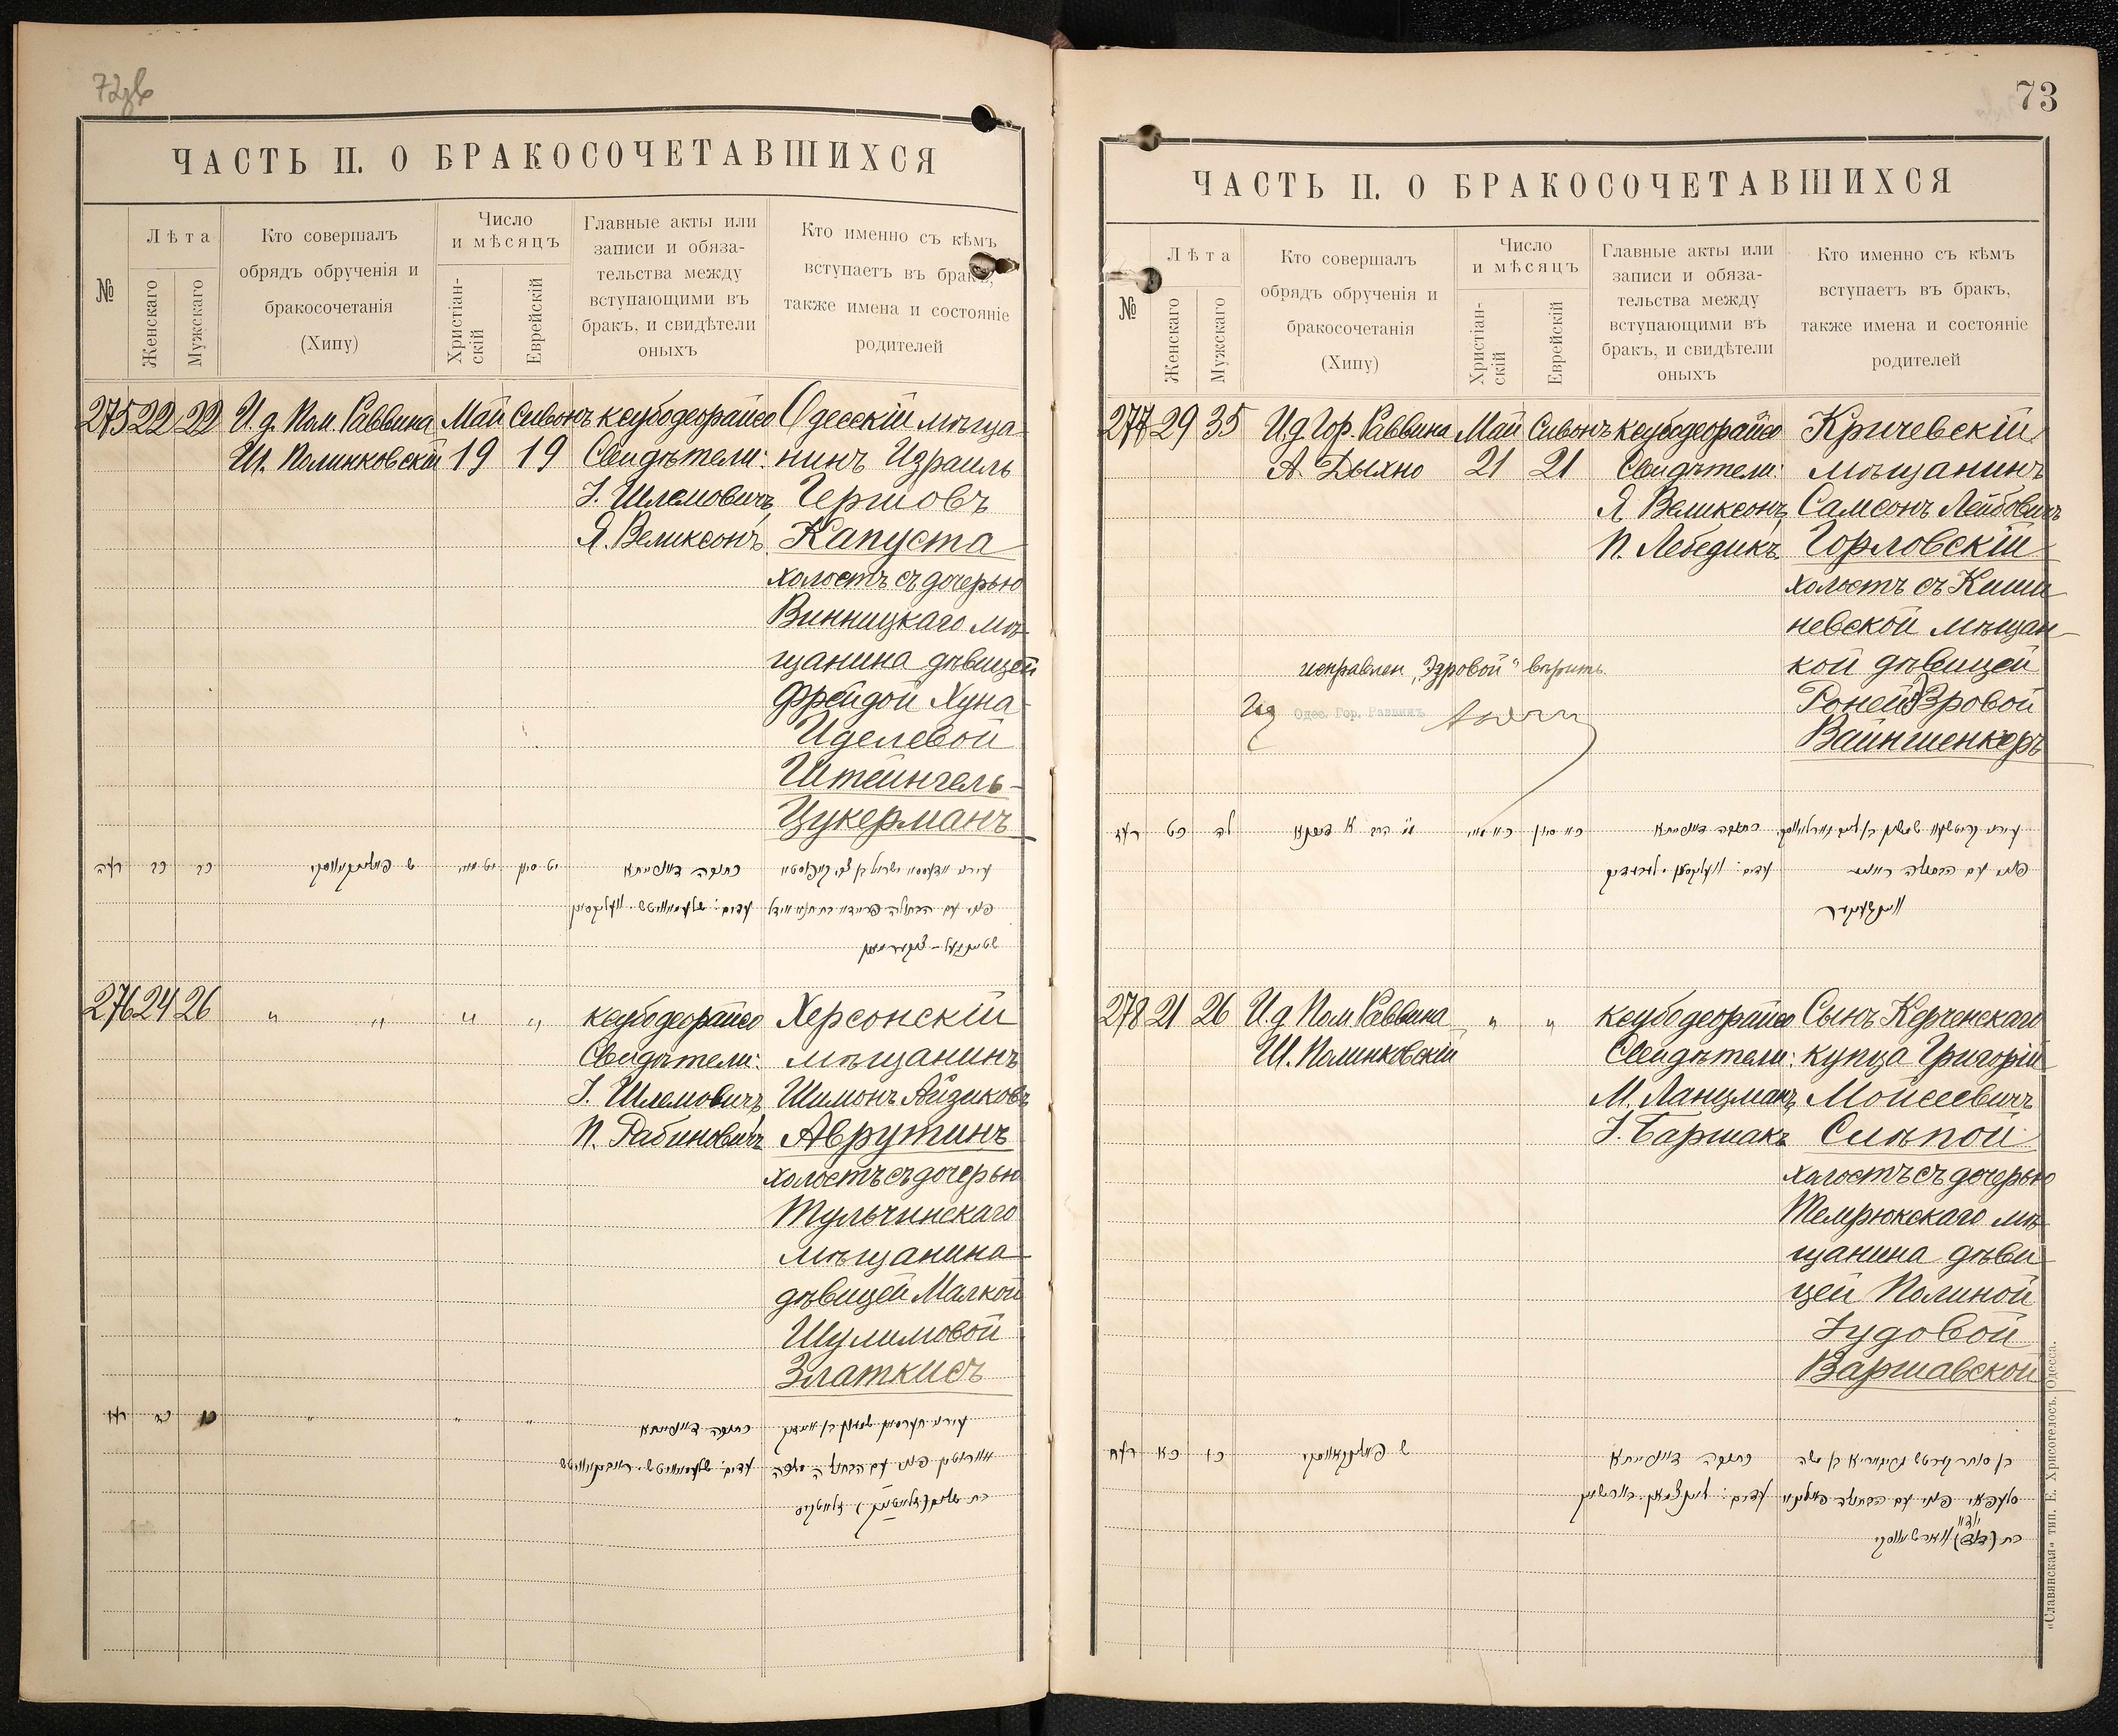 72
ЧАСТЬ II. О БРАКОСОЧЕТАВШИХСЯ
№
Лѣта
Женскаго
Мужскаго
Кто совершалъ
обрядъ обрученія и
бракосочетанія
(Хипу)
Число
и мѣсяцъ
Христіан-
скій
Еврейскій
Главные акты или
записи и обяза-
тельства между
вступающими въ
бракъ, и свидѣтели
оныхъ
Кто именно съ кѣмъ
вступаетъ въ бракъ,
также имена и состояніе
родителей
275 22 22
И. д. Пом. Раввина
Ш. Полинковскій
Май Сивонъ
19 19
ксубодеорайсо
Свидѣтели:
І. Шлемовичъ,
Я. Великсонъ
Одесскій мѣща-
нинъ Израиль
Гершовъ
Капуста
холостъ съ дочерью
Винницкаго мѣ-
щанина дѣвицей
Фрейдой Хуна-
Иделевой
Штейнгель-
Цукерманъ
רעה כב כב ש פאלינקאווסקי יט מאי יט סיון
כתובה דאורייתא
276 24 26
" " " "
ксубодеорайсо
Свидѣтели:
І. Шлемовичъ,
П. Рабиновичъ
Херсонскій
мѣщанинъ
Шимонъ Айзиковъ
Аврутинъ
холостъ съ дочерью
Тульчинскаго
мѣщанина
дѣвицей Малкой
Шулимовой
Златкисъ
כתובה דאורייתא
73
ЧАСТЬ II. О БРАКОСОЧЕТАВШИХСЯ
№
Лѣта
Женскаго
Мужскаго
Кто совершалъ
обрядъ обрученія и
бракосочетанія
(Хипу)
Число
и мѣсяцъ
Христіан-
скій
Еврейскій
Главные акты или
записи и обяза-
тельства между
вступающими въ
бракъ, и свидѣтели
оныхъ
Кто именно съ кѣмъ
вступаетъ въ бракъ,
также имена и состояніе
родителей
277 29 35
И.д. Гор. Раввина
А. Дыхно
Май Сивонъ
21 21
ксубодеорайсо
Свидѣтели:
Я. Великсонъ,
П. Лебедикъ
Кричевскій
мѣщанинъ
Самсонъ Лейбовичъ
Горловскій
холостъ съ Киши-
невской мѣщан-
кой дѣвицей
Роней Эзровой
Вайншенкеръ
исправлен. „Эзровой" вѣрить.
Ид Одес. Гор. Раввинъ
רעז כט לה
כתובה דאורייתא
278 21 26
И.д. Пом. Раввина
Ш. Полинковскій
" "
ксубодеорайсо
Свидѣтели:
М. Ланцманъ,
І. Баршакъ
Сынъ Керченскаго
купца Григорій
Мойсеевичъ
Слѣпой
холостъ съ дочерью
Темрюкскаго мѣ-
щанина дѣви-
цей Полиной
Іудовой
Варшавской
רעח כא כו ש פאלינקאווסקי
כתובה דאורייתא
«Славянская» тип. Е. Хрисогелосъ, Одесса.